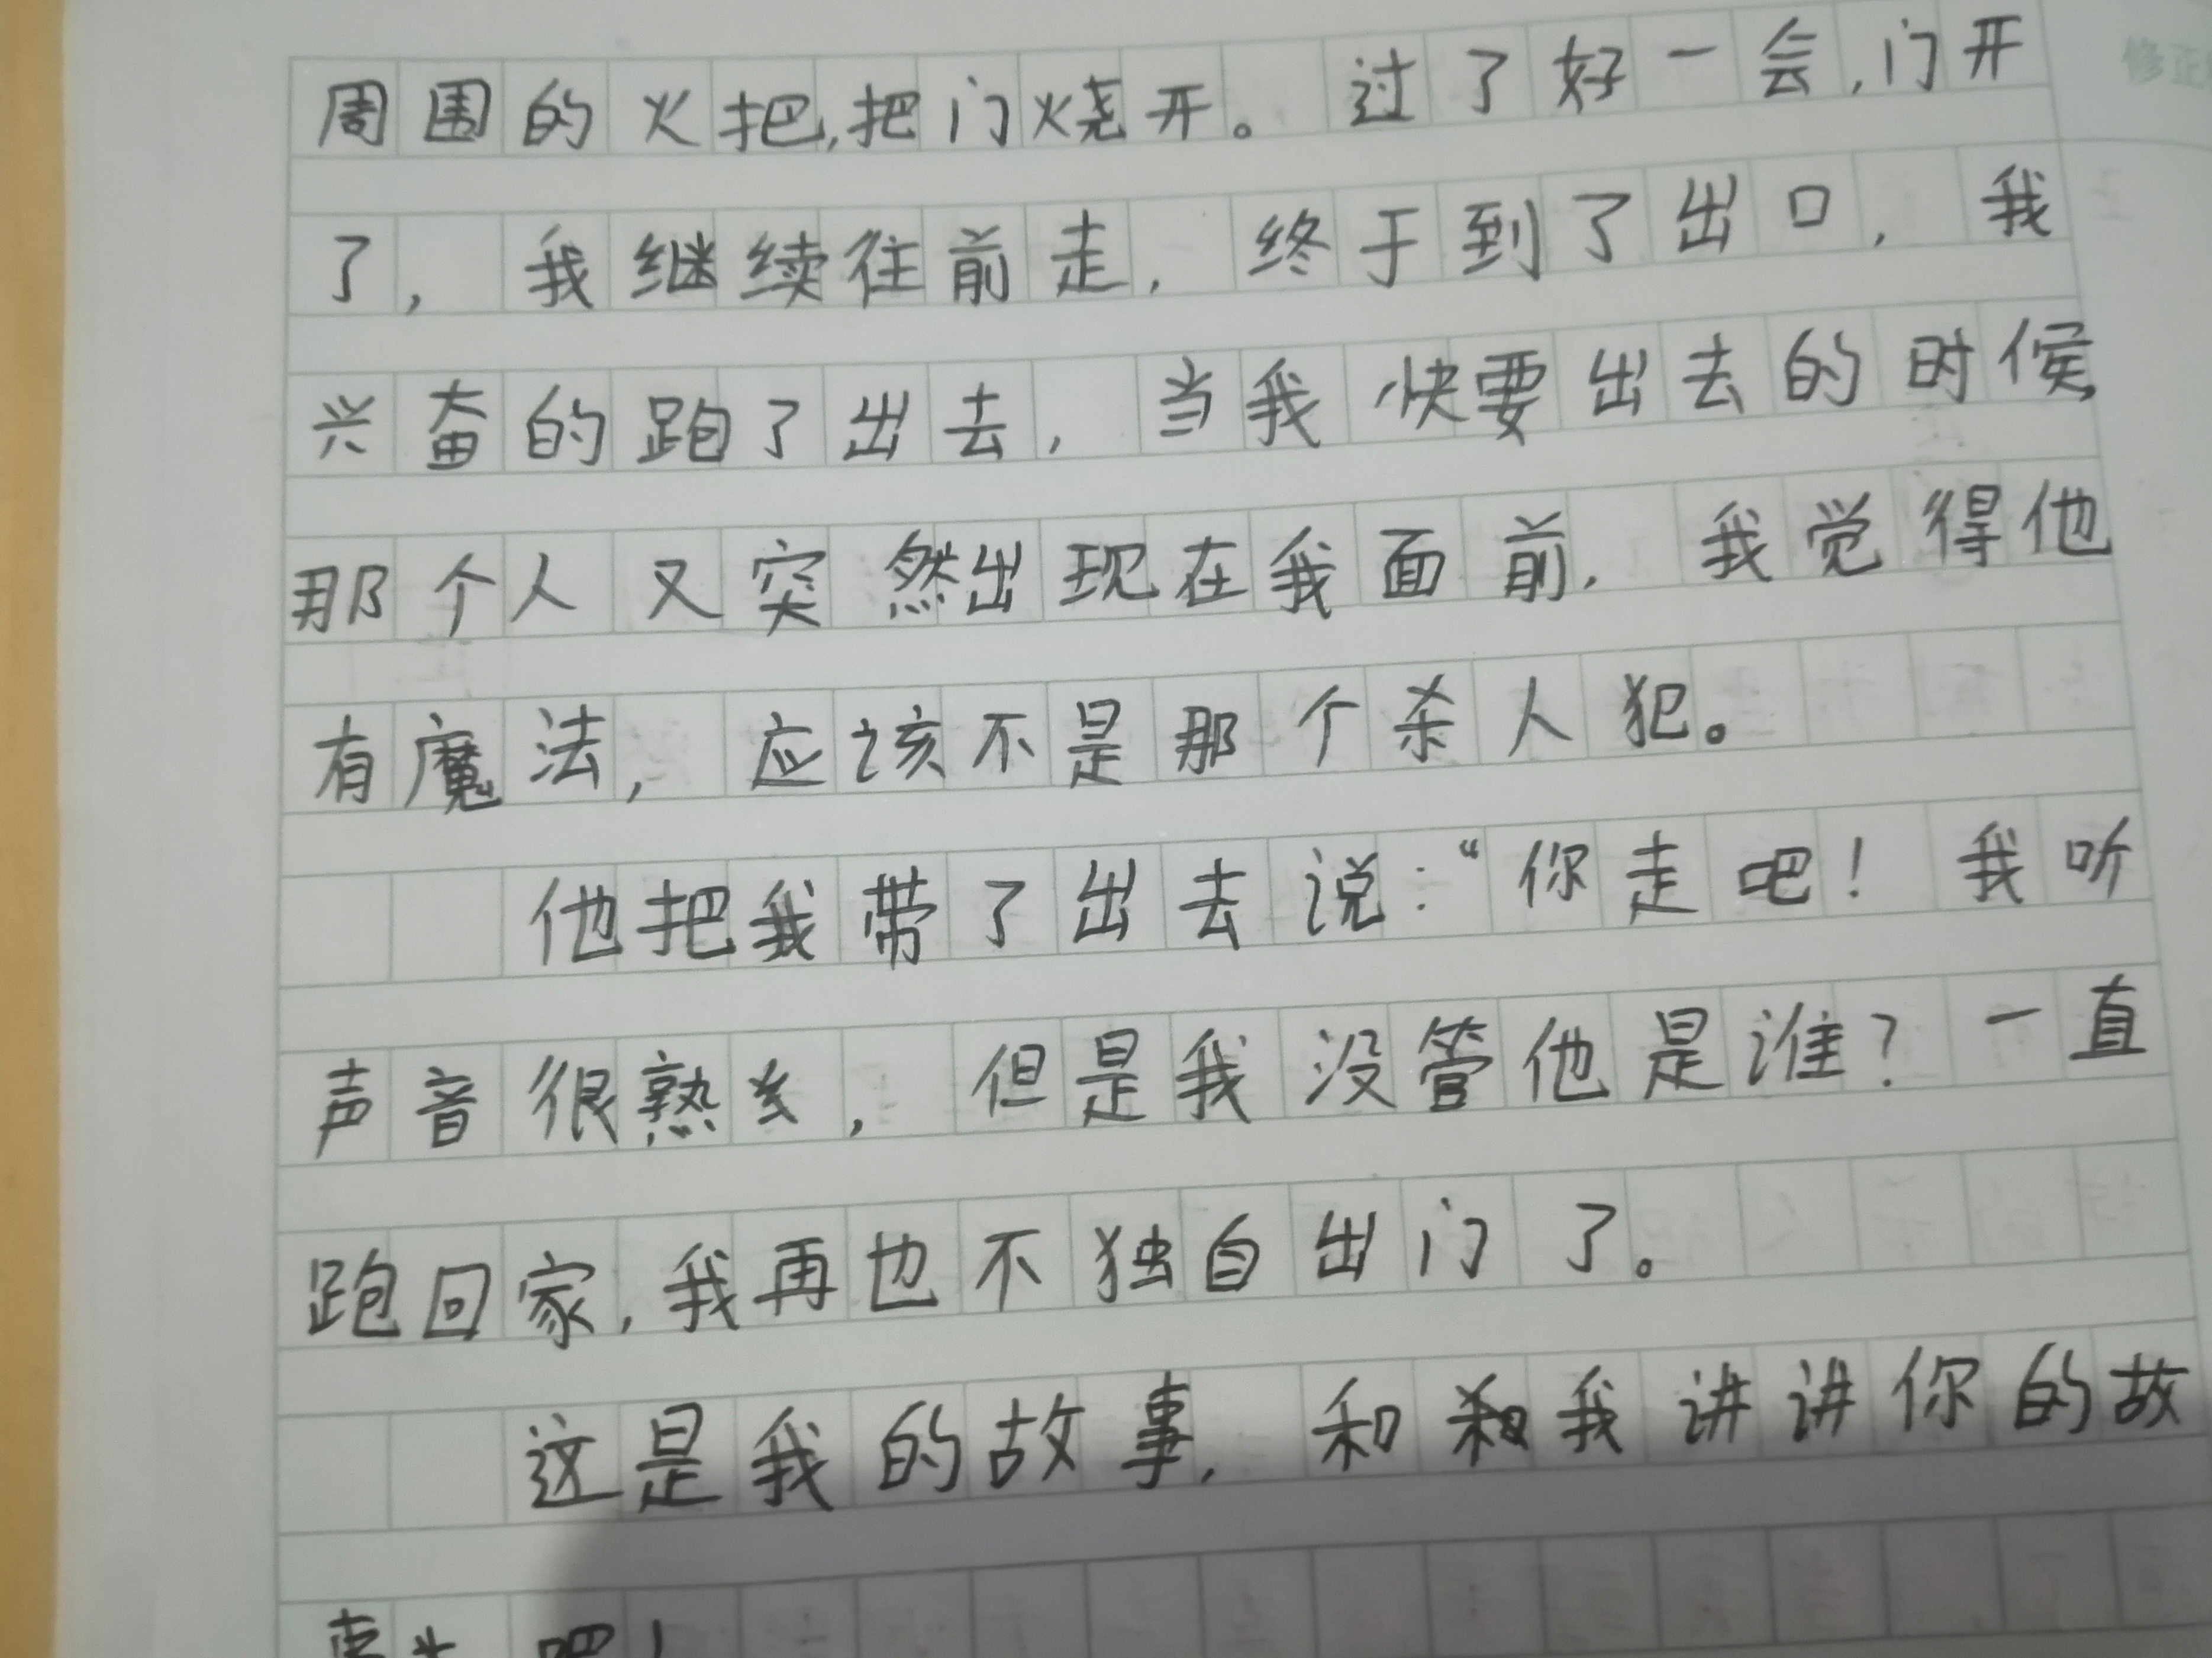 周围的火把,把门烧开。过了好一会,门开
了,我继续往前走,终于到了出口,我
兴奋的跑了出去,当我快要出去的时候,
那个人又突然出现在我面前,我觉得他
有魔法,应该不是那个杀人犯。
他把我带了出去说:“你走吧!我听
声音很熟,但是我没管他是谁?一直
跑回家,我再也不独自出门了。
这是我的故事,和我讲讲你的故
吧!
修正